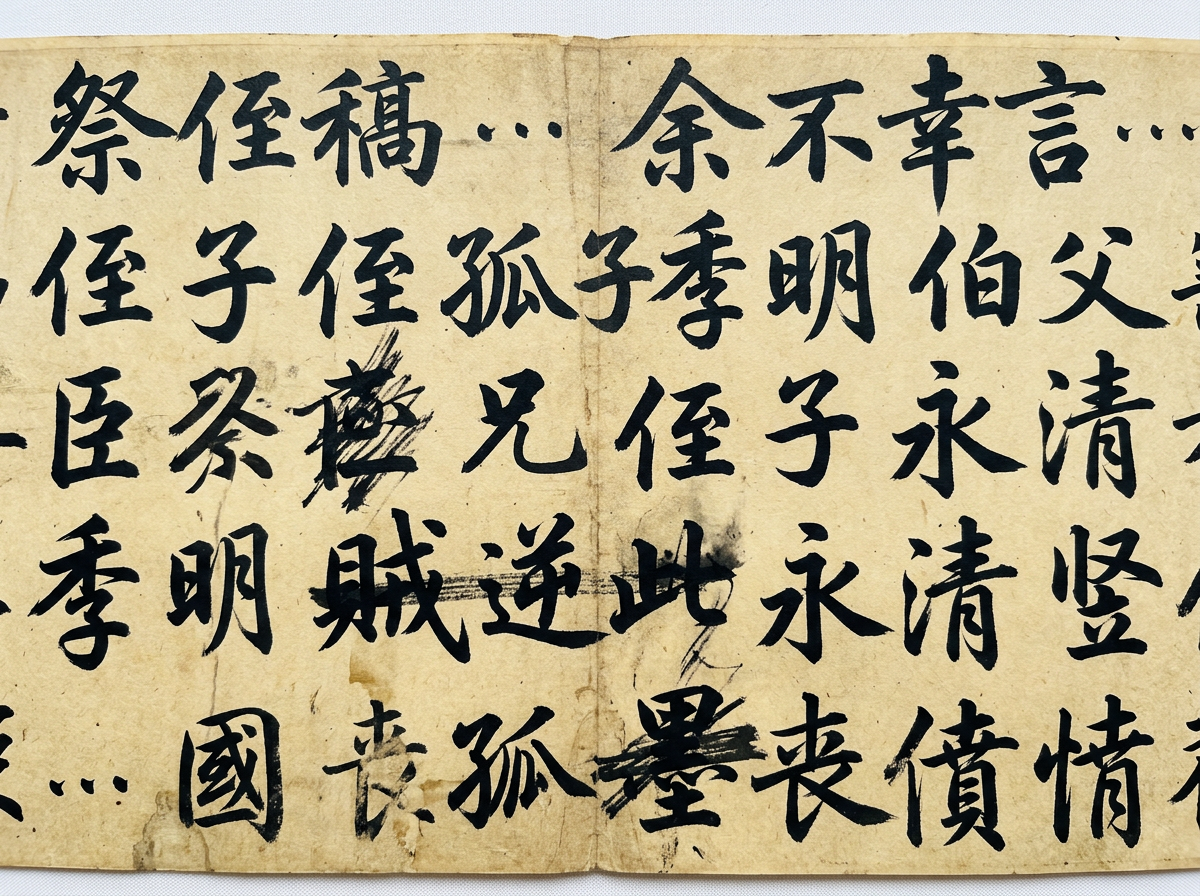 祭侄稿… 余不幸言…
侄子侄孤子季明伯父
臣祭兄侄子永清
季明賊逆此永清竖
…國丧孤墨丧償情